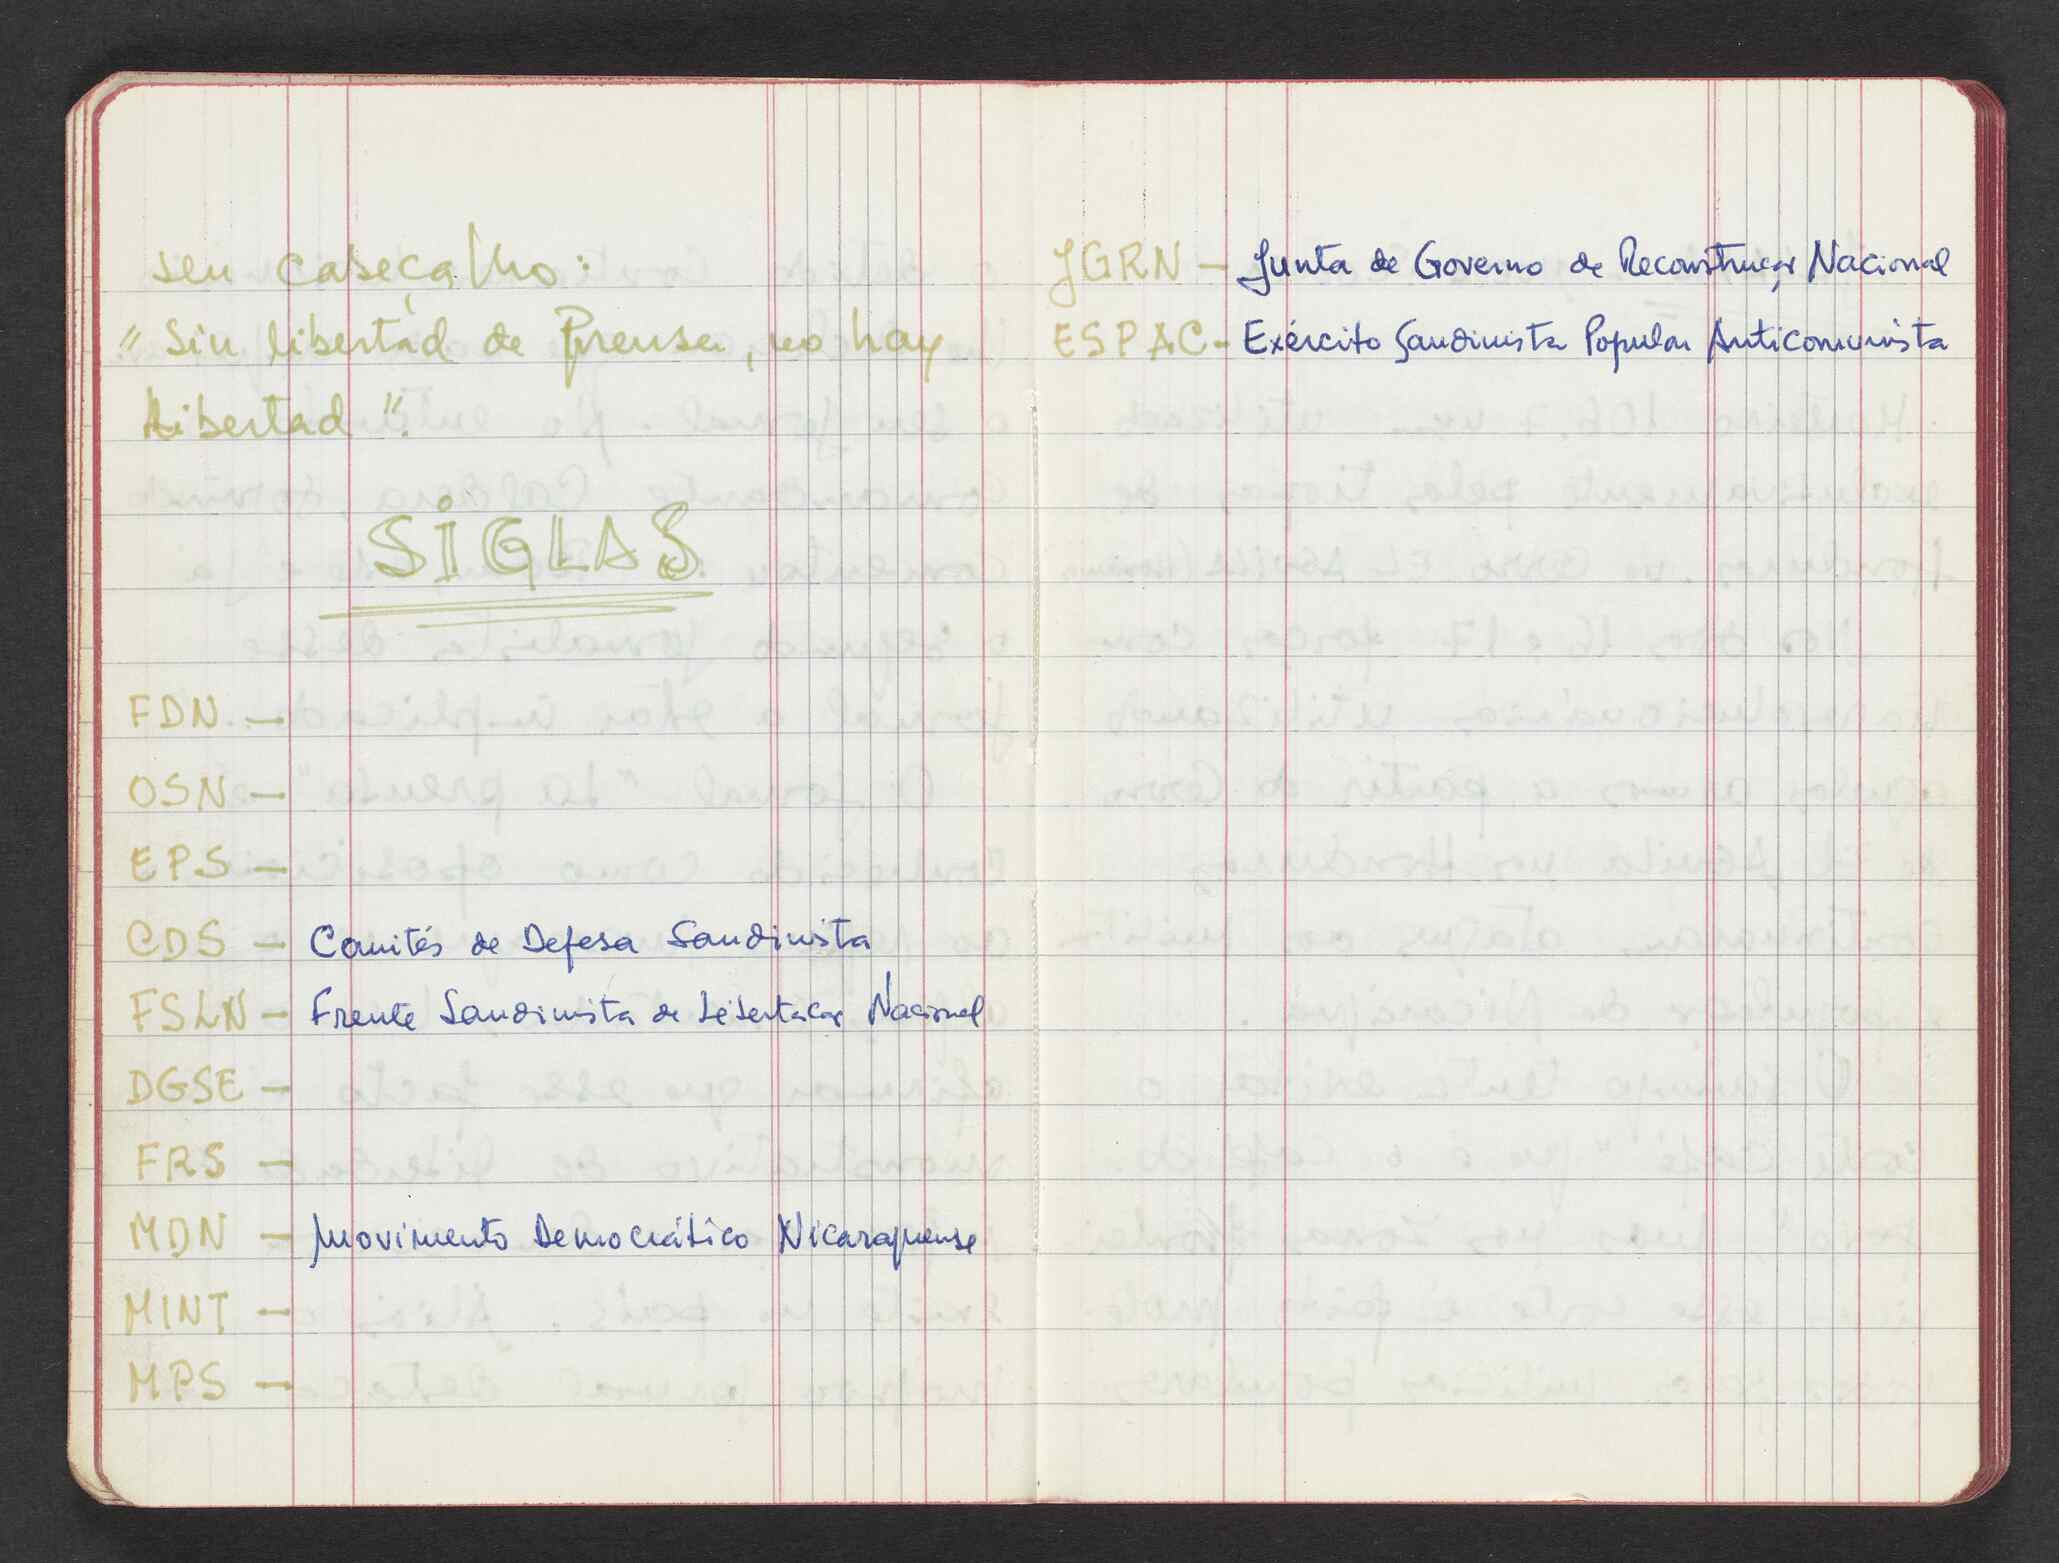 seu cabeçalho:
"Sin libertad de Prensa, no hay
Libertad".
SIGLAS
FDN —
OSN —
EPS —
CDS — Comités de Defesa Sandinista
FSLN — Frente Sandinista de Libertação Nacional
DGSE —
FRS —
MDN — Movimento Democrático Nicaraguense
MINT —
MPS —
JGRN — Junta de Governo de Reconstrução Nacional
ESPAC — Exército Sandinista Popular Anticomunista